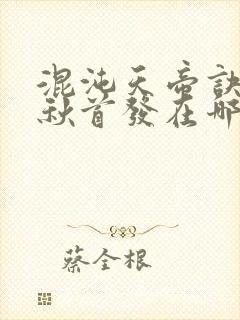 混沌天帝訣
秋首發在哪
蔡全根